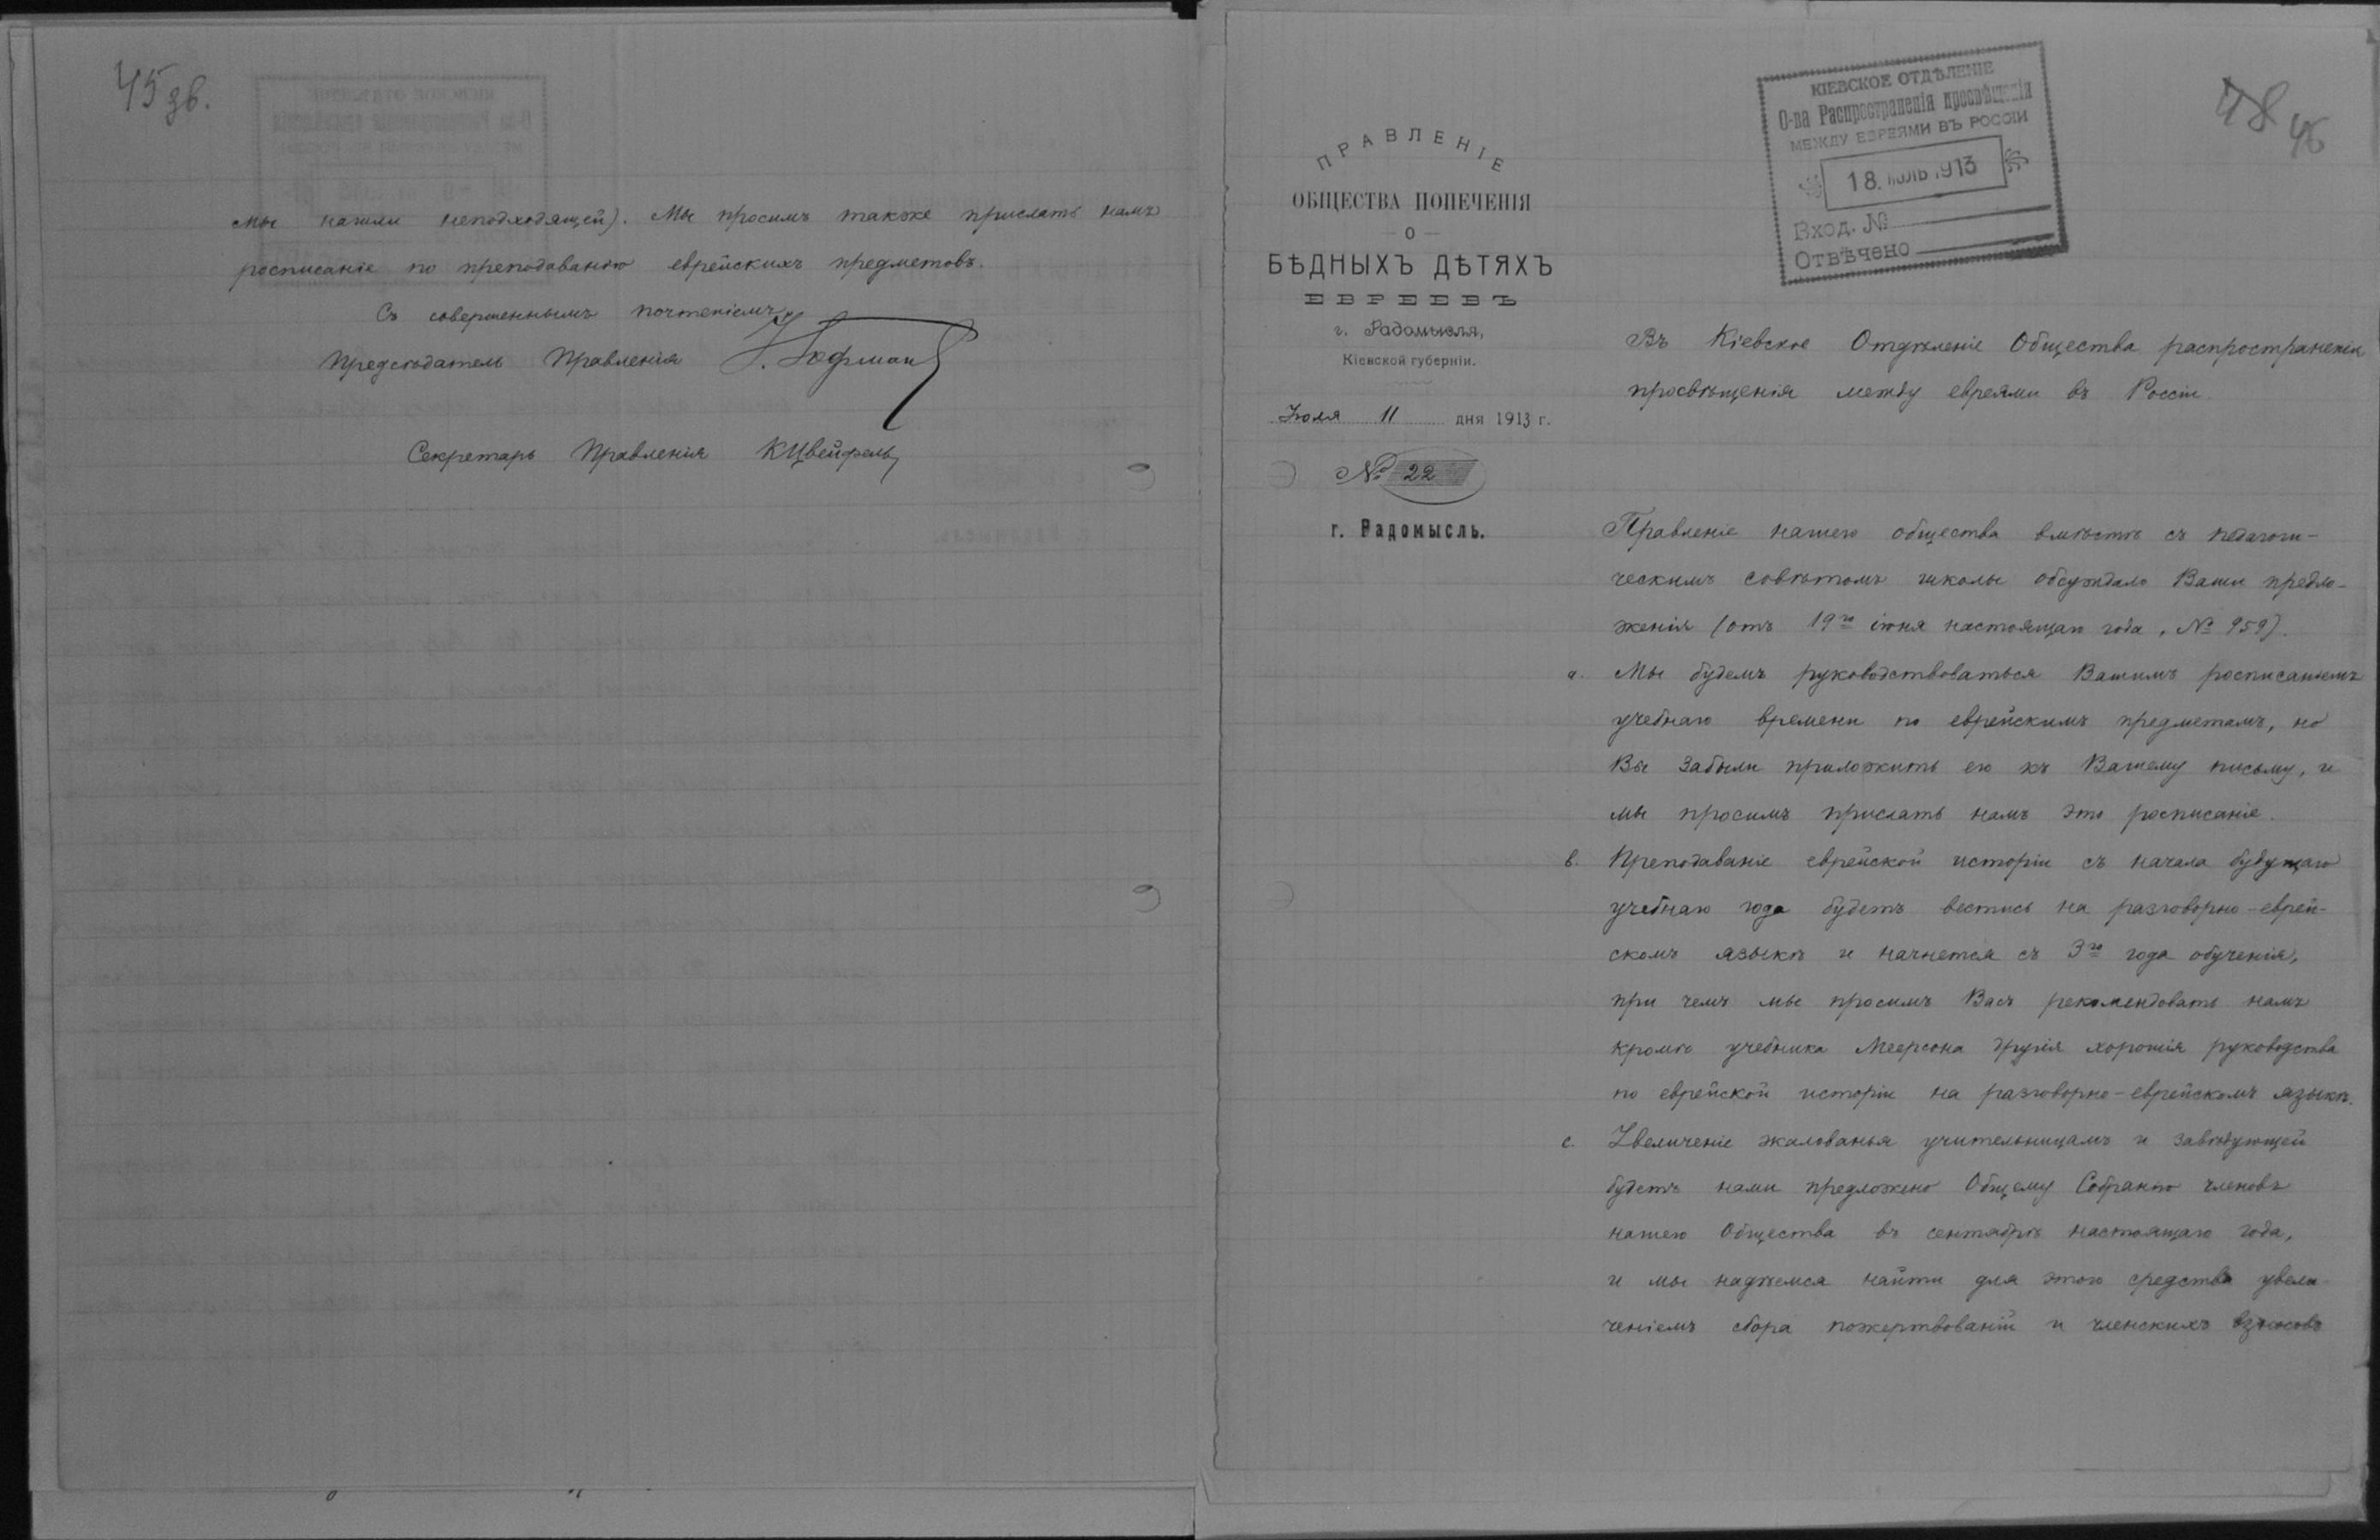 45 зв.
мы нашли неподходящей). Мы просимъ также прислать намъ
росписаніе по преподаванію еврейскихъ предметовъ.
Съ совершеннымъ почтеніемъ
Предсѣдатель Правленія Гофман
Секретарь Правленія КЦвейфель
ПРАВЛЕНІЕ
ОБЩЕСТВА ПОПЕЧЕНІЯ
— О —
БѢДНЫХЪ ДѢТЯХЪ
ЕВРЕЕВЪ
г. Радомысля,
Кіевской губерніи.
Іюля 11 дня 1913 г.
№ 22
г. Радомысль.
КІЕВСКОЕ ОТДѢЛЕНІЕ
О-ва Распространенія просвѣщенія
МЕЖДУ ЕВРЕЯМИ ВЪ РОССІИ
18. ІЮЛЬ 1913
Вход. №
Отвѣчено
48 46
Въ Кіевское Отдѣленіе Общества распространенія
просвѣщенія между евреями въ Россіи.
Правленіе нашего общества вмѣстѣ съ педагоги-
ческимъ совѣтомъ школы обсуждало Ваши предло-
женія (отъ 19го іюня настоящаго года, № 959).
а. Мы будемъ руководствоваться Вашимъ росписаніемъ
учебнаго времени по еврейскимъ предметамъ, но
Вы забыли приложить его къ Вашему письму, и
мы просимъ прислать намъ это росписаніе.
в. Преподаваніе еврейской исторіи съ начала будущаго
учебнаго года будетъ вестись на разговорно-еврей-
скомъ языкѣ и начнется съ 3го года обученія,
при чемъ мы просимъ Васъ рекомендовать намъ
кромѣ учебника Меерсона другія хорошія руководства
по еврейской исторіи на разговорно-еврейскомъ языкѣ.
с. Увеличеніе жалованья учительницамъ и завѣдующей
будетъ нами предложено Общему Собранію членовъ
нашего Общества въ сентябрѣ настоящаго года,
и мы надѣемся найти для этого средства увели-
ченіемъ сбора пожертвованій и членскихъ взносовъ